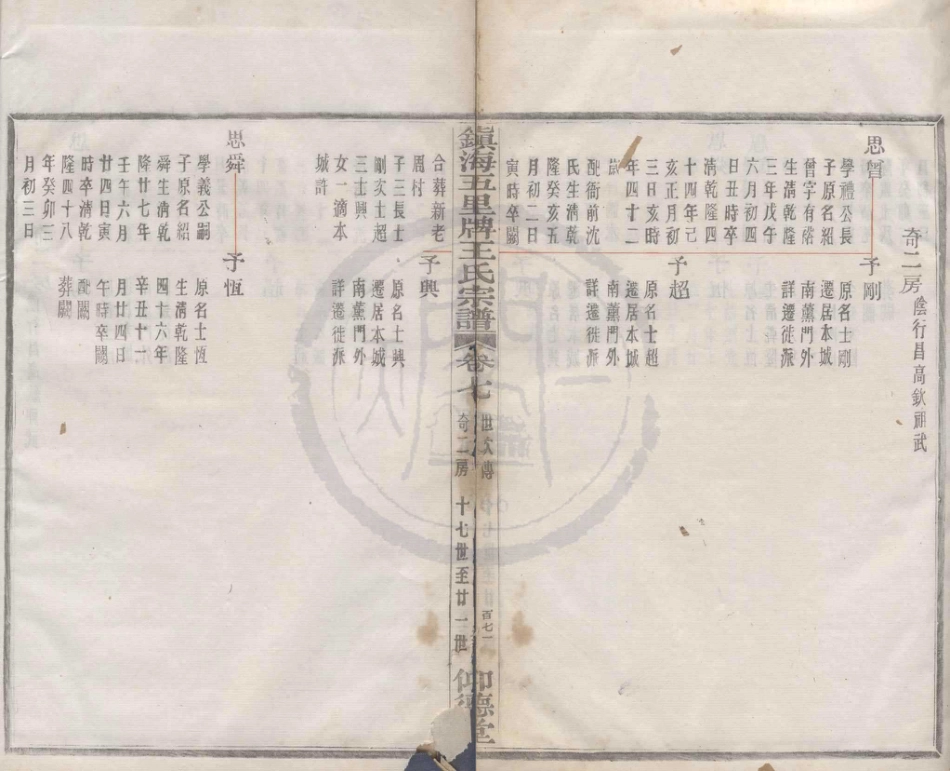 奇二房 蔭行昌高欽祖武
思曾
學禮公長
子原名紹
曾字有容
生清乾隆
三年戊午
六月初四
日丑時卒
清乾隆四
十四年己
亥正月初
三日亥時
年四十二
配衙前沈
氏生清乾
隆癸亥五
月初二日
寅時卒闕
合葬新老
周村
子三長士
剛次士超
三士興
女一適本
城許
予剛
原名士剛
遷居本城
南薰門外
詳遷徙派
予超
原名士超
遷居本城
南薰門外
詳遷徙派
予興
原名士興
遷居本城
南薰門外
詳遷徙派
思舜
學義公嗣
子原名紹
舜生清乾
隆廿七年
壬午六月
廿四日寅
時卒清乾
隆四十八
年癸卯三
月初三日
予恆
原名士恆
生清乾隆
四十六年
辛丑十一
月廿四日
午時卒闕
配闕
葬闕
鎮海五里牌王氏宗譜 卷七
世次傳
奇二房
十七世至廿一世
百七一
仰德堂